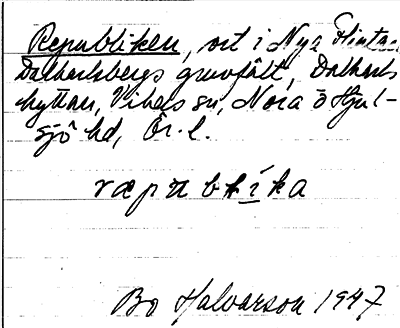 Republiken, ort i Nya Flinta-
Dalkarlsbergs gruvfält, Dalkarls
hyttan, Vikers sn, Nora o Hjul-
sjö hd, Ör. l.
ræpublíka
Bo Halvarson 1947